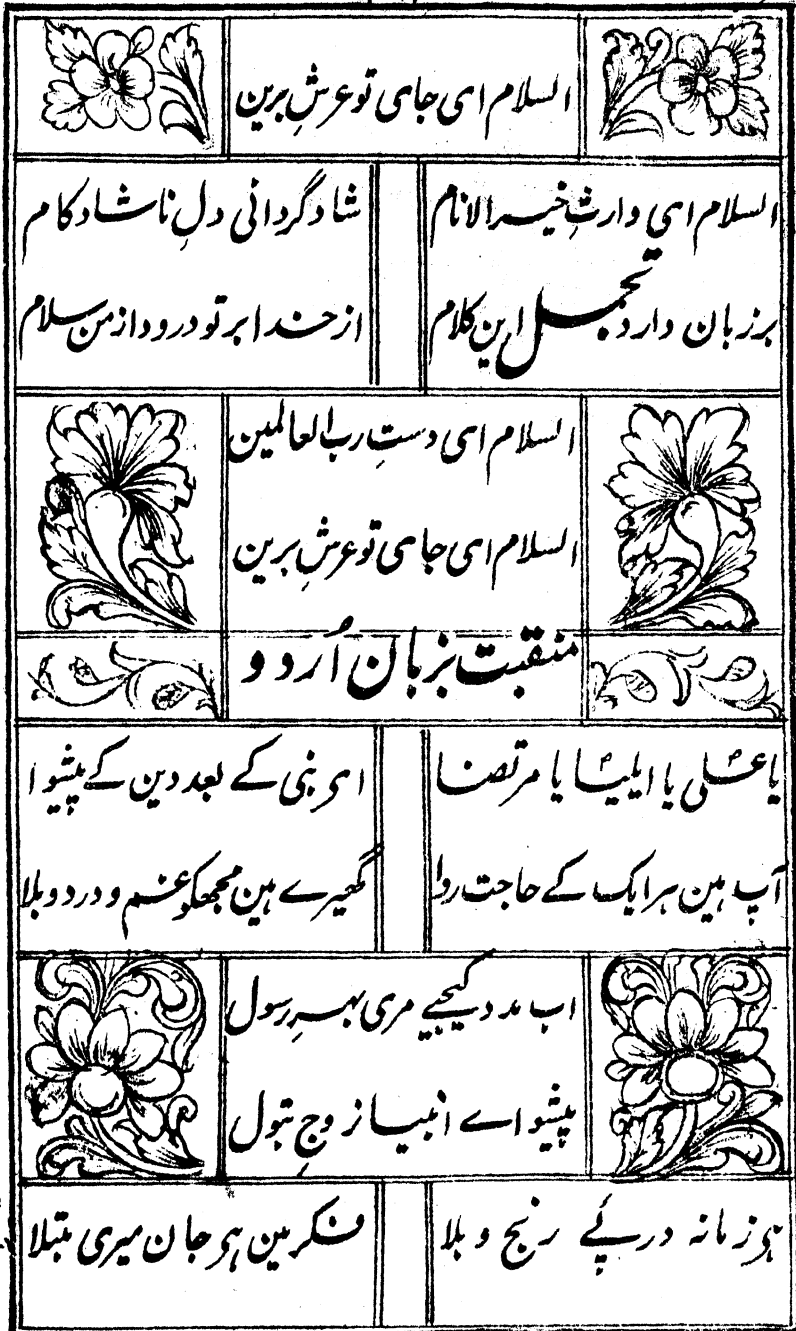 السلام ای جای تو عرشِ برین
السلام ای وارثِ خیر الانام
شاد گردانی دلِ ناشاد کام
بر زبان دارد تجمل این کلام
از خدا بر تو درود از من سلام
السلام ای دستِ رب العالمین
السلام ای جای تو عرشِ برین
منقبت بزبان اُردو
یا علی یا ایلیا یا مرتضا
ای نبی کے بعد دین کے پیشوا
آپ ہین ہر ایک کے حاجت روا
گھیرے ہین مجھکو غم و درد و بلا
اب مدد کیجیے مری بہرِ رسول
پیشواے انبیا زوجِ بتول
ہر زمانہ درپئے رنج و بلا
فکر مین ہر جان میری مبتلا